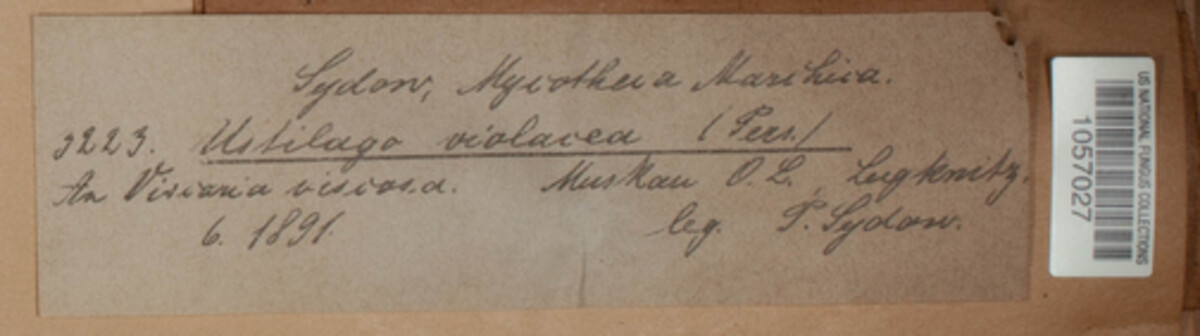 Sydow, Mycotheca Marchica.
3223. Ustilago violacea (Pers.)
An Viscaria viscosa. Muskau O.L., Lugknitz.
6. 1891. leg. P. Sydow.
US NATIONAL FUNGUS COLLECTIONS
1057027